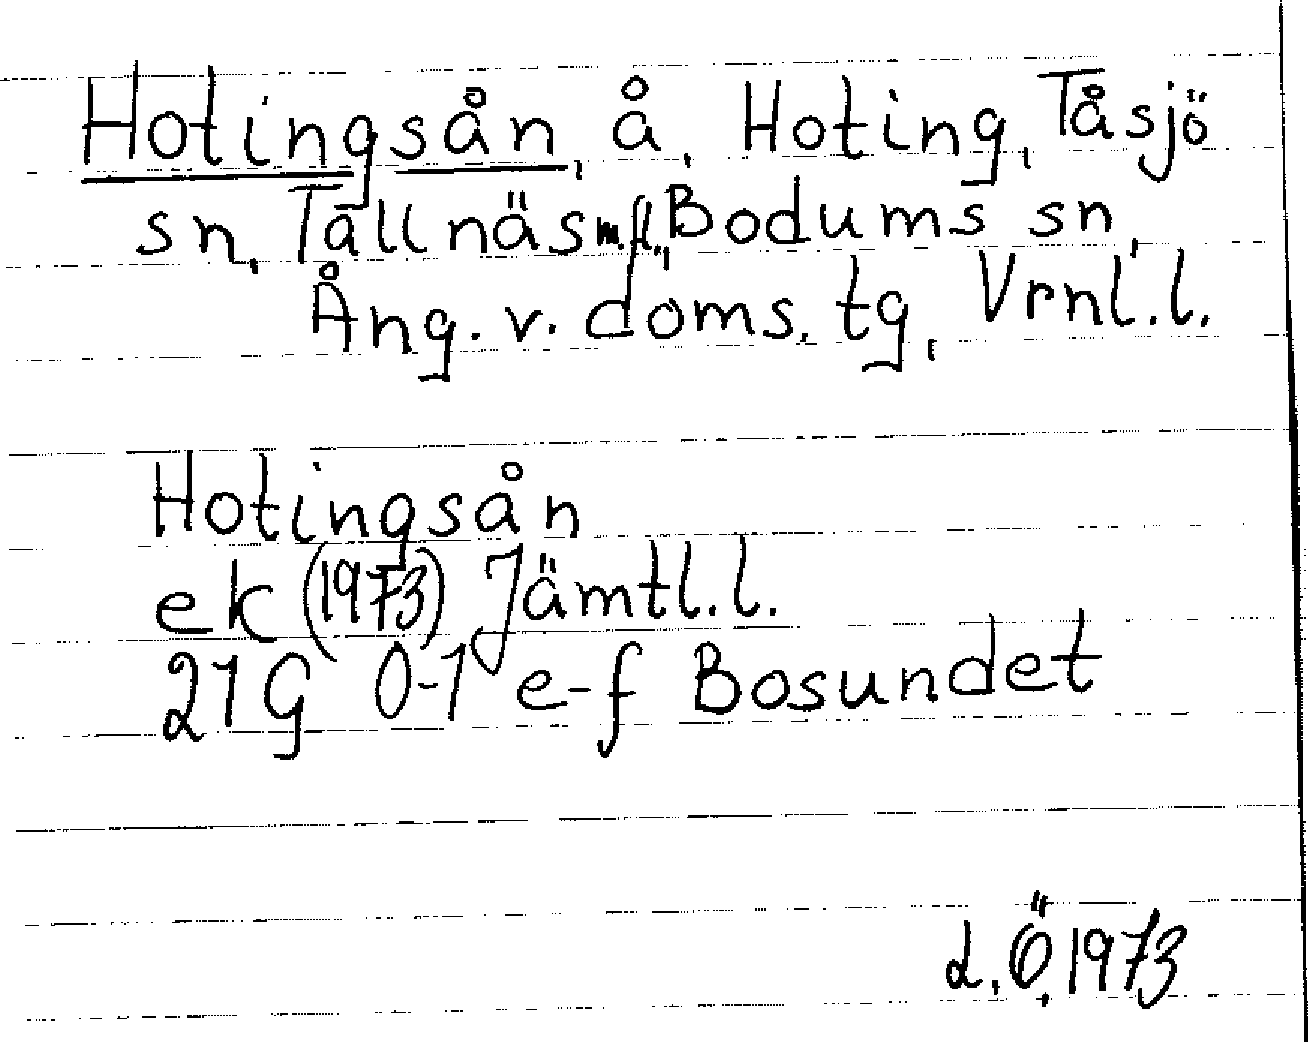 Hotingsån, å, Hoting, Tåsjö
sn, Tallnäs m.fl., Bodums sn,
Ång. v. doms. tg, Vrnl.l.
Hotingsån
ek (1973) Jämtl.l.
21G 0-1 e-f Bosundet
L.Ö. 1973